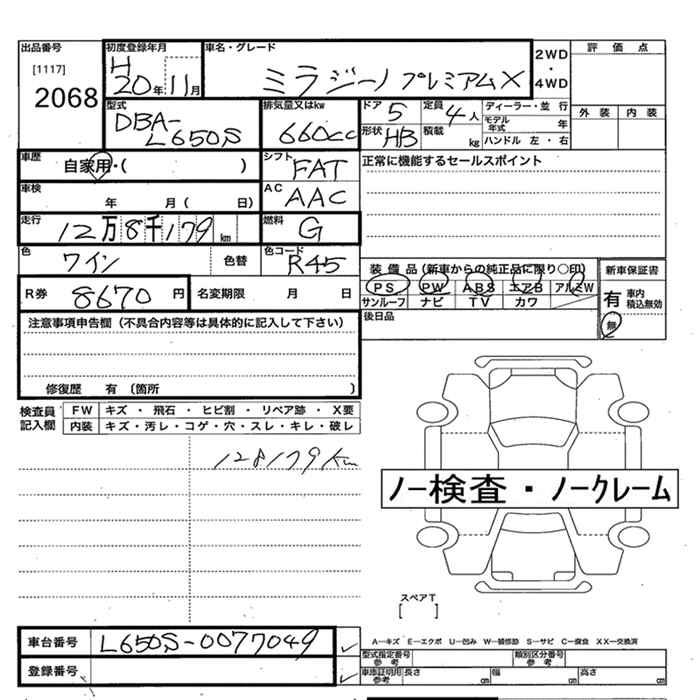 出品番号 初度登録年月 車名・グレード 2WD 評価点
[1117] H ・
2068 20年11月 ミラジーノ プレミアムX 4WD
型式 排気量又はkw ドア 定員 ディーラー・並行 外装 内装
DBA-L650S 660cc 5 4人 モデル年式 年
形状 HB 積載 kg ハンドル 左・右
車歴 自家用・( ) シフト FAT 正常に機能するセールスポイント
車検 年 月( 日) AC AAC
走行 12万8千179km 燃料 G
色 ワイン 色替 色コード R45 装備品(新車からの純正品に限り○印) 新車保証書
PS PW ABS エアB アルミW 有 車内積込無効
R券 8670円 名変期限 月 日 サンルーフ ナビ TV カワ 無
注意事項申告欄(不具合内容等は具体的に記入して下さい) 後日品
修復歴 有 〔箇所 〕
検査員記入欄 FW キズ・飛石・ヒビ割・リペア跡・X要
内装 キズ・汚レ・コゲ・穴・スレ・キレ・破レ
128179km
ノー検査・ノークレーム
スペアT
[ ]
車台番号 L650S-0077049 A−キズ E−エクボ U−凹み W−補修跡 S−サビ C−腐食 XX−交換済
登録番号 型式指定番号 参考 類別区分番号 参考
車庫証明用参考 長さ cm 幅 cm 高さ cm